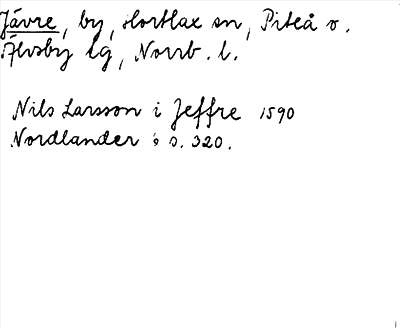 Jävre, by, Hortlax sn, Piteå o.
Älvsby tg, Norrb. l.
Nils Larsson i Jeffre 1590
Nordlander s. 320.